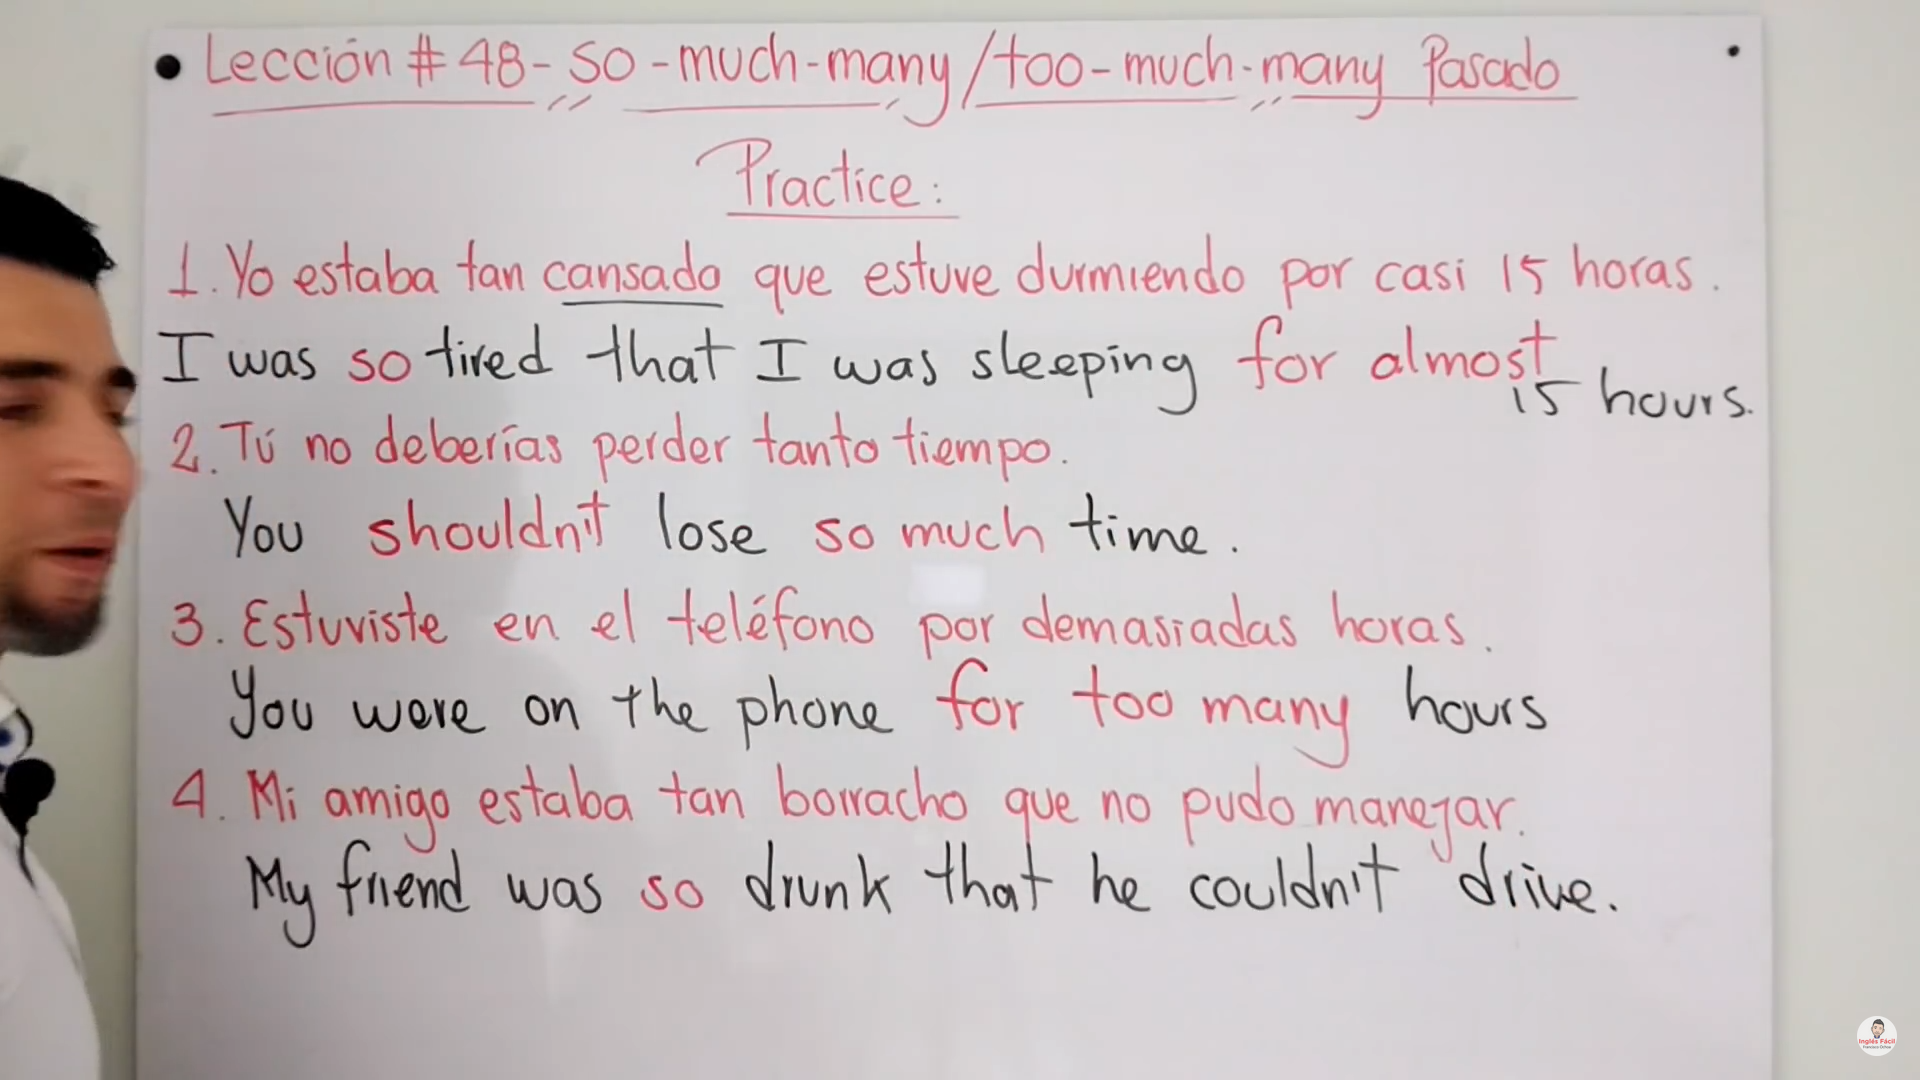 Lección # 48 - so - much - many / too - much - many Pasado
Practice:
1. Yo estaba tan cansado que estuve durmiendo por casi 15 horas.
I was so tired that I was sleeping for almost
15 hours.
2. Tú no deberías perder tanto tiempo.
You shouldn't lose so much time.
3. Estuviste en el teléfono por demasiadas horas.
You were on the phone for too many hours
4. Mi amigo estaba tan borracho que no pudo manejar.
My friend was so drunk that he couldn't drive.
Inglés Fácil